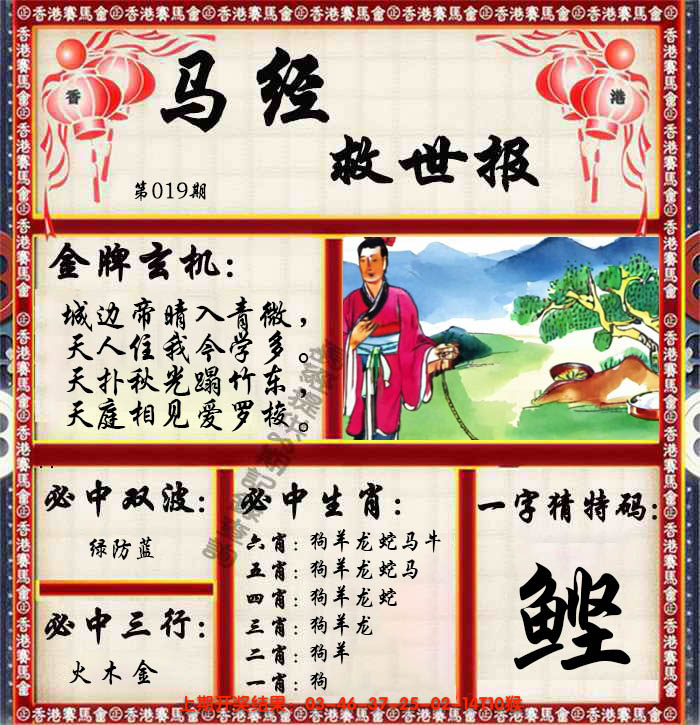 香港賽馬會
香
港
马经
救世报
第019期
金牌玄机：
城边帝晴入青微，
天人住我今学多。
天扑秋光蹋竹东，
天庭相见爱罗梭。
必中双波：
绿防蓝
必中三行：
火木金
必中生肖：
六肖：狗羊龙蛇马牛
五肖：狗羊龙蛇马
四肖：狗羊龙蛇
三肖：狗羊龙
二肖：狗羊
一肖：狗
一字猜特码：
鲣
上期开奖结果：03-46-37-25-02-14T10猴